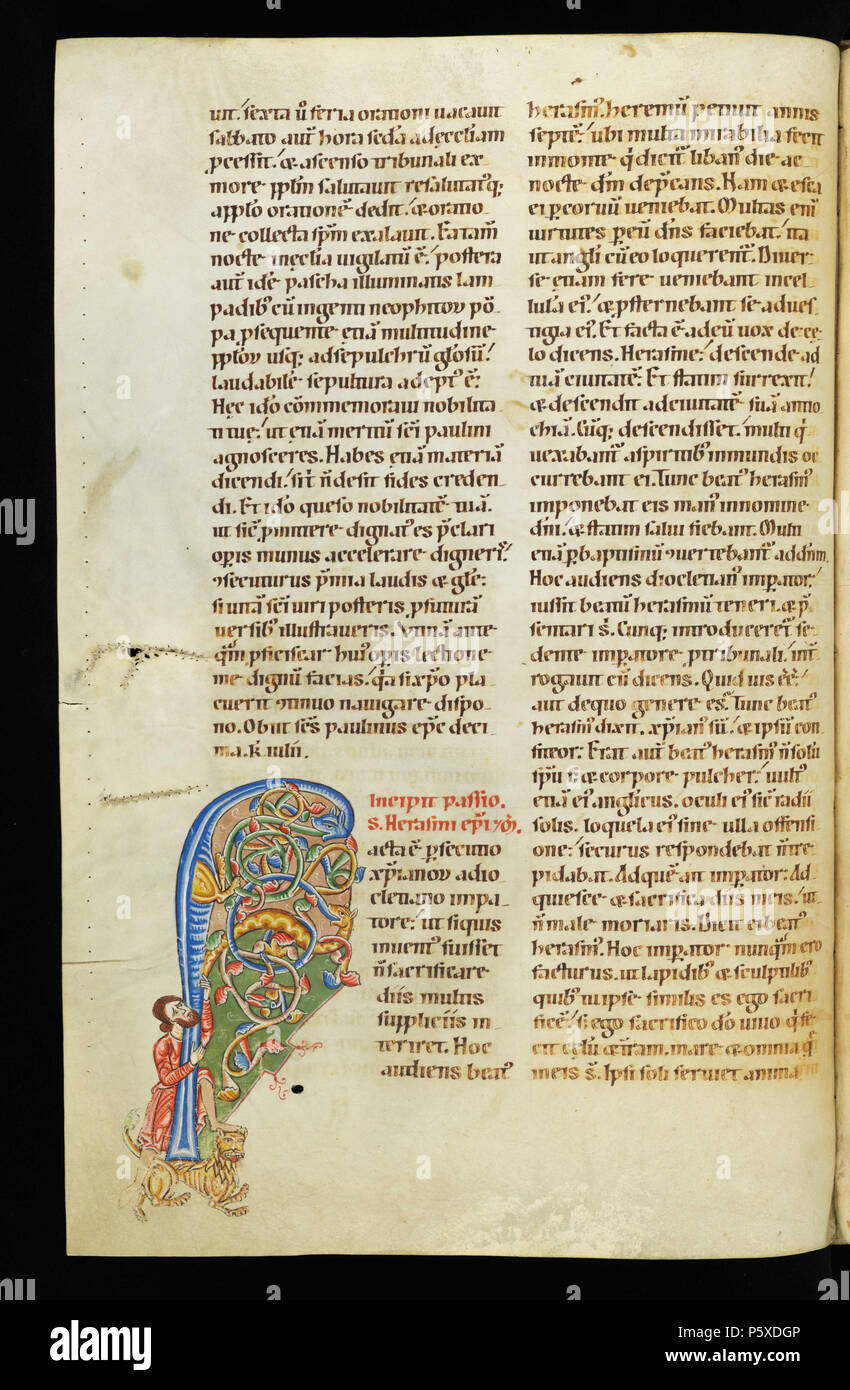 uit. sexta ů feria orationi uacauit
sabbato aut̄ hora sedā ad ęccliam
p̄cessit. & ascenso tribunali ex
more pplm̄ salutauit resalutatusq;
a pplo orationē dedit. & oratio
ne collecta sp̄m exalauit. Eatam̄
nocte in ęcclia uigilatū ē. postera
aut̄ idē pascha illuminatis lam
padib; cū ingenti neophitoꝝ pō
pa p̄sequente etiā multitudine
pploꝝ usq; ad sepulchrū glosū
laudabilē sepulturā adept᾽ ē.
Hęc ido cōmemoraui nobilita
ti tuę. ut etiā meritū sc̄i paulini
agnosceres. Habes etiā materiā
dicendi. si t̄ n̄ desit fides creden
di. Et ido queso nobilitatē tuā.
ut sic̄ p̄mittere dignat᾽ es p̄clari
opis munus accelerare digneris.
ꝯsecuturus p̄mia laudis & glę.
si uitā sc̄i uiri posteris p̄futurā
uersib; illustraueris. Vnū ante
q̄m p̄ficiscar hui᾽ opis lectione
me dignū facias. q̄a si xp̄o pla
cuerit ꝯtinuo nauigare dispo
no. Obiit sc̄s paulinus ep̄c deci
ma. K̄ iulii.
Incipit passio.
S. Herasmi ep̄i ⁊ ꝏ̄.
F
acta ē p̄secutio
xp̄ianoꝝ a dio
cletiano impa
tore. ut siquis
inuent᾽ fuisset
n̄ sacrificare
diis multis
suppliciis in
teriret. Hoc
audiens beat᾽
herasm᾽. heremū petiit annis
septē. ubi multa mirabilia fecit
in monte q̄ dicit̄ liban᾽ die ac
nocte dm̄ dep̄cans. Nam & esca
ei p coruū ueniebat. Multas eni᾽
uirtutes p eū dn̄s faciebat. ita
ut angli cū eo loquerent̄. Diuer
se etiam fere ueniebant in cel
lulā ei᾽. & p̄sternebant se ad ues
tigia ei᾽. Et facta ē ad eū uox de cę
lo dicens. Herasme. descende ad
tuā ciuitatē. Et statim surrexit.
& descendit ad ciuitatē suā antio
chiā. Cūq; descendisset. multi q̄
uexabant̄ a spiritib; inmundis oc
currebant ei. Tunc beat᾽ herasm᾽
imponebat eis man᾽ in nomine
dn̄i. & statim salui fiebant. Multi
etiā p baptismū ꝯuertebant̄ ad dn̄m.
Hoc audiens dioclecian᾽ impator.
iussit beatū herasmū teneri. & p̄
sentari s̄. Cunq; introduceret̄ se
dente impatore p̄ tribunali. int̄
rogauit eū dicens. Quid uis ee᾽.
aut de quo genere es. Tunc beat᾽
herasm᾽ dixit. xp̄ian᾽ sū. & ipsū con
fiteor. Erat aut̄ beat᾽ herasm᾽ n̄ solū
sp̄u s; & corpore pulcher. uult᾽
etiā ei᾽ anglicus. oculi ei᾽ sic̄ radii
solis. loquela ei᾽ sine ulla offensi
one. securus respondebat n̄ tre
pidabat. Ad quē ait impator. Ad
quiesce & sacrifica diis meis. ut
n̄ male moriaris. Dicit ei beat᾽
herasm᾽. Hoc impator nunq̄m ero
facturus. ut lapidib; & sculptilib;
quib; tu ipse similis es ego sacri
ficē. s; ego sacrifico dō uiuo q̄ fe
cit cęlū & t̄ram. mare & omnia q̄
in eis s̄. Ipsi soli seruiet anima
alamy
Image ID: P5XDGP
www.alamy.com